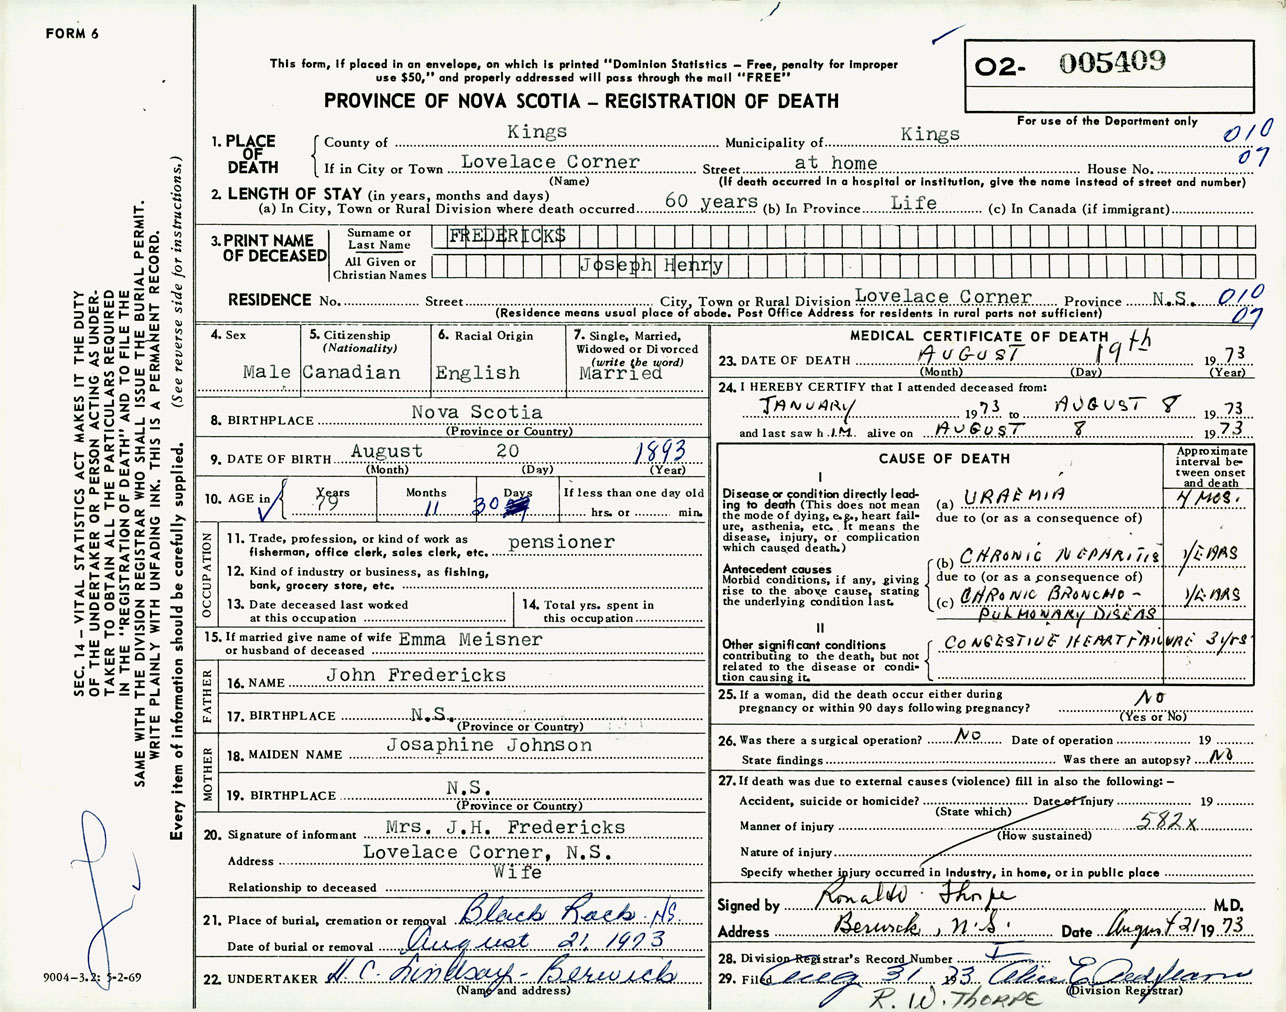 FORM 6
This form, if placed in an envelope, on which is printed "Dominion Statistics – Free, penalty for improper
use $50," and properly addressed will pass through the mail "FREE"
PROVINCE OF NOVA SCOTIA – REGISTRATION OF DEATH
02- 005409
For use of the Department only
1. PLACE OF DEATH
County of Kings Municipality of Kings 010
If in City or Town Lovelace Corner Street at home House No. 07
(Name) (If death occurred in a hospital or institution, give the name instead of street and number)
2. LENGTH OF STAY (in years, months and days)
(a) In City, Town or Rural Division where death occurred 60 years (b) In Province Life (c) In Canada (if immigrant)
3. PRINT NAME OF DECEASED
Surname or Last Name FREDERICKS
All Given or Christian Names Joseph Henry
RESIDENCE No. Street City, Town or Rural Division Lovelace Corner Province N.S. 010
(Residence means usual place of abode. Post Office Address for residents in rural parts not sufficient) 07
4. Sex Male
5. Citizenship (Nationality) Canadian
6. Racial Origin English
7. Single, Married, Widowed or Divorced (write the word) Married
8. BIRTHPLACE Nova Scotia
(Province or Country)
9. DATE OF BIRTH August 20 1893
(Month) (Day) (Year)
10. AGE in Years 79 Months 11 Days 30 If less than one day old hrs. or min.
OCCUPATION
11. Trade, profession, or kind of work as
fisherman, office clerk, sales clerk, etc. pensioner
12. Kind of industry or business, as fishing,
bank, grocery store, etc.
13. Date deceased last worked
at this occupation
14. Total yrs. spent in
this occupation
15. If married give name of wife
or husband of deceased Emma Meisner
FATHER
16. NAME John Fredericks
17. BIRTHPLACE N.S.
(Province or Country)
MOTHER
18. MAIDEN NAME Josaphine Johnson
19. BIRTHPLACE N.S.
(Province or Country)
20. Signature of informant Mrs. J.H. Fredericks
Address Lovelace Corner, N.S.
Relationship to deceased Wife
21. Place of burial, cremation or removal Black Rock NS.
Date of burial or removal August 21, 1973
22. UNDERTAKER H. C. Lindsay - Berwick
(Name and address)
MEDICAL CERTIFICATE OF DEATH
23. DATE OF DEATH AUGUST 19th 1973
(Month) (Day) (Year)
24. I HEREBY CERTIFY that I attended deceased from:
JANUARY 1973 to AUGUST 8 1973
and last saw h IM alive on AUGUST 8 1973
CAUSE OF DEATH
Approximate interval be-tween onset and death
I
Disease or condition directly lead-
ing to death (This does not mean
the mode of dying, e.g., heart fail-
ure, asthenia, etc. It means the
disease, injury, or complication
which caused death.)
(a) URAEMIA 4 MOS.
due to (or as a consequence of)
Antecedent causes
Morbid conditions, if any, giving
rise to the above cause, stating
the underlying condition last.
(b) CHRONIC NEPHRITIS YEARS
due to (or as a consequence of)
(c) CHRONIC BRONCHO - YEARS
PULMONARY DISEAS
II
Other significant conditions
contributing to the death, but not
related to the disease or condi-
tion causing it.
CONGESTIVE HEART FAILURE 3 yrs
25. If a woman, did the death occur either during
pregnancy or within 90 days following pregnancy? NO
(Yes or No)
26. Was there a surgical operation? NO Date of operation 19
State findings Was there an autopsy? NO
27. If death was due to external causes (violence) fill in also the following: –
Accident, suicide or homicide? Date of Injury 19
(State which)
Manner of injury 582x
(How sustained)
Nature of injury
Specify whether injury occurred in industry, in home, or in public place
Signed by Ronald W. Thorpe M.D.
Address Berwick, N.S. Date August 21 1973
28. Division Registrar's Record Number
29. Filed Aug 31 1973
(Division Registrar)
R. W. THORPE
SEC. 14 – VITAL STATISTICS ACT MAKES IT THE DUTY
OF THE UNDERTAKER OR PERSON ACTING AS UNDER-
TAKER TO OBTAIN ALL THE PARTICULARS REQUIRED
IN THE "REGISTRATION OF DEATH" AND TO FILE THE
SAME WITH THE DIVISION REGISTRAR WHO SHALL ISSUE THE BURIAL PERMIT.
WRITE PLAINLY WITH UNFADING INK. THIS IS A PERMANENT RECORD.
Every item of information should be carefully supplied. (See reverse side for instructions.)
9004-3.2: 5-2-69